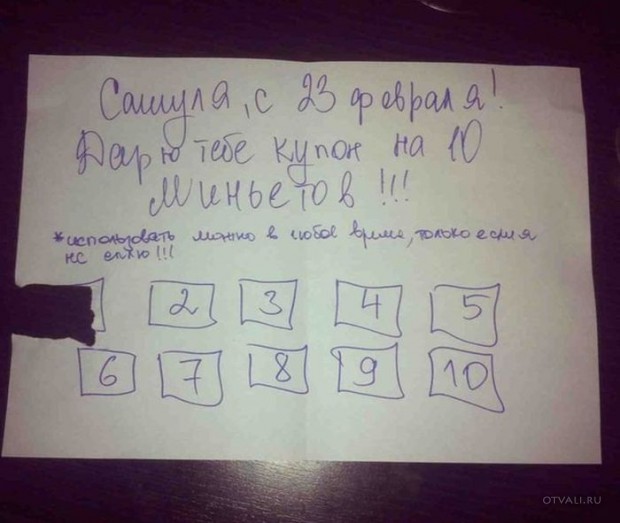 Сашуля, с 23 февраля!
Дарю тебе купон на 10
миньетов!!!
*использовать можно в любое время, только если я
не сплю!!!
2 3 4 5
6 7 8 9 10
OTVALI.RU